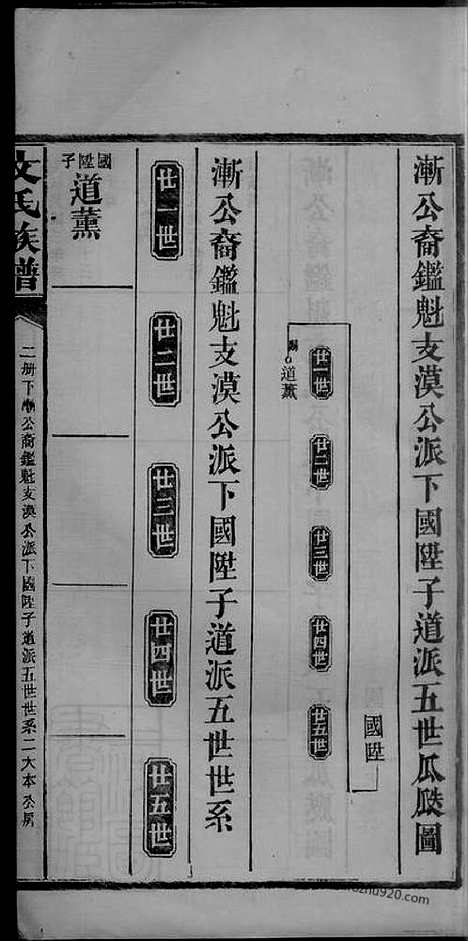 漸公裔鑑魁支漠公派下國陞子道派五世瓜瓞圖
國陞
廿一世
廿二世
廿三世
廿四世
廿五世
道薰
漸公裔鑑魁支漠公派下國陞子道派五世世系
廿一世
廿二世
廿三世
廿四世
廿五世
國陞子
道薰
文氏族譜
二册下漸公裔鑑魁支漠公派下國陞子道派五世世系二大本公房
zhu920.com